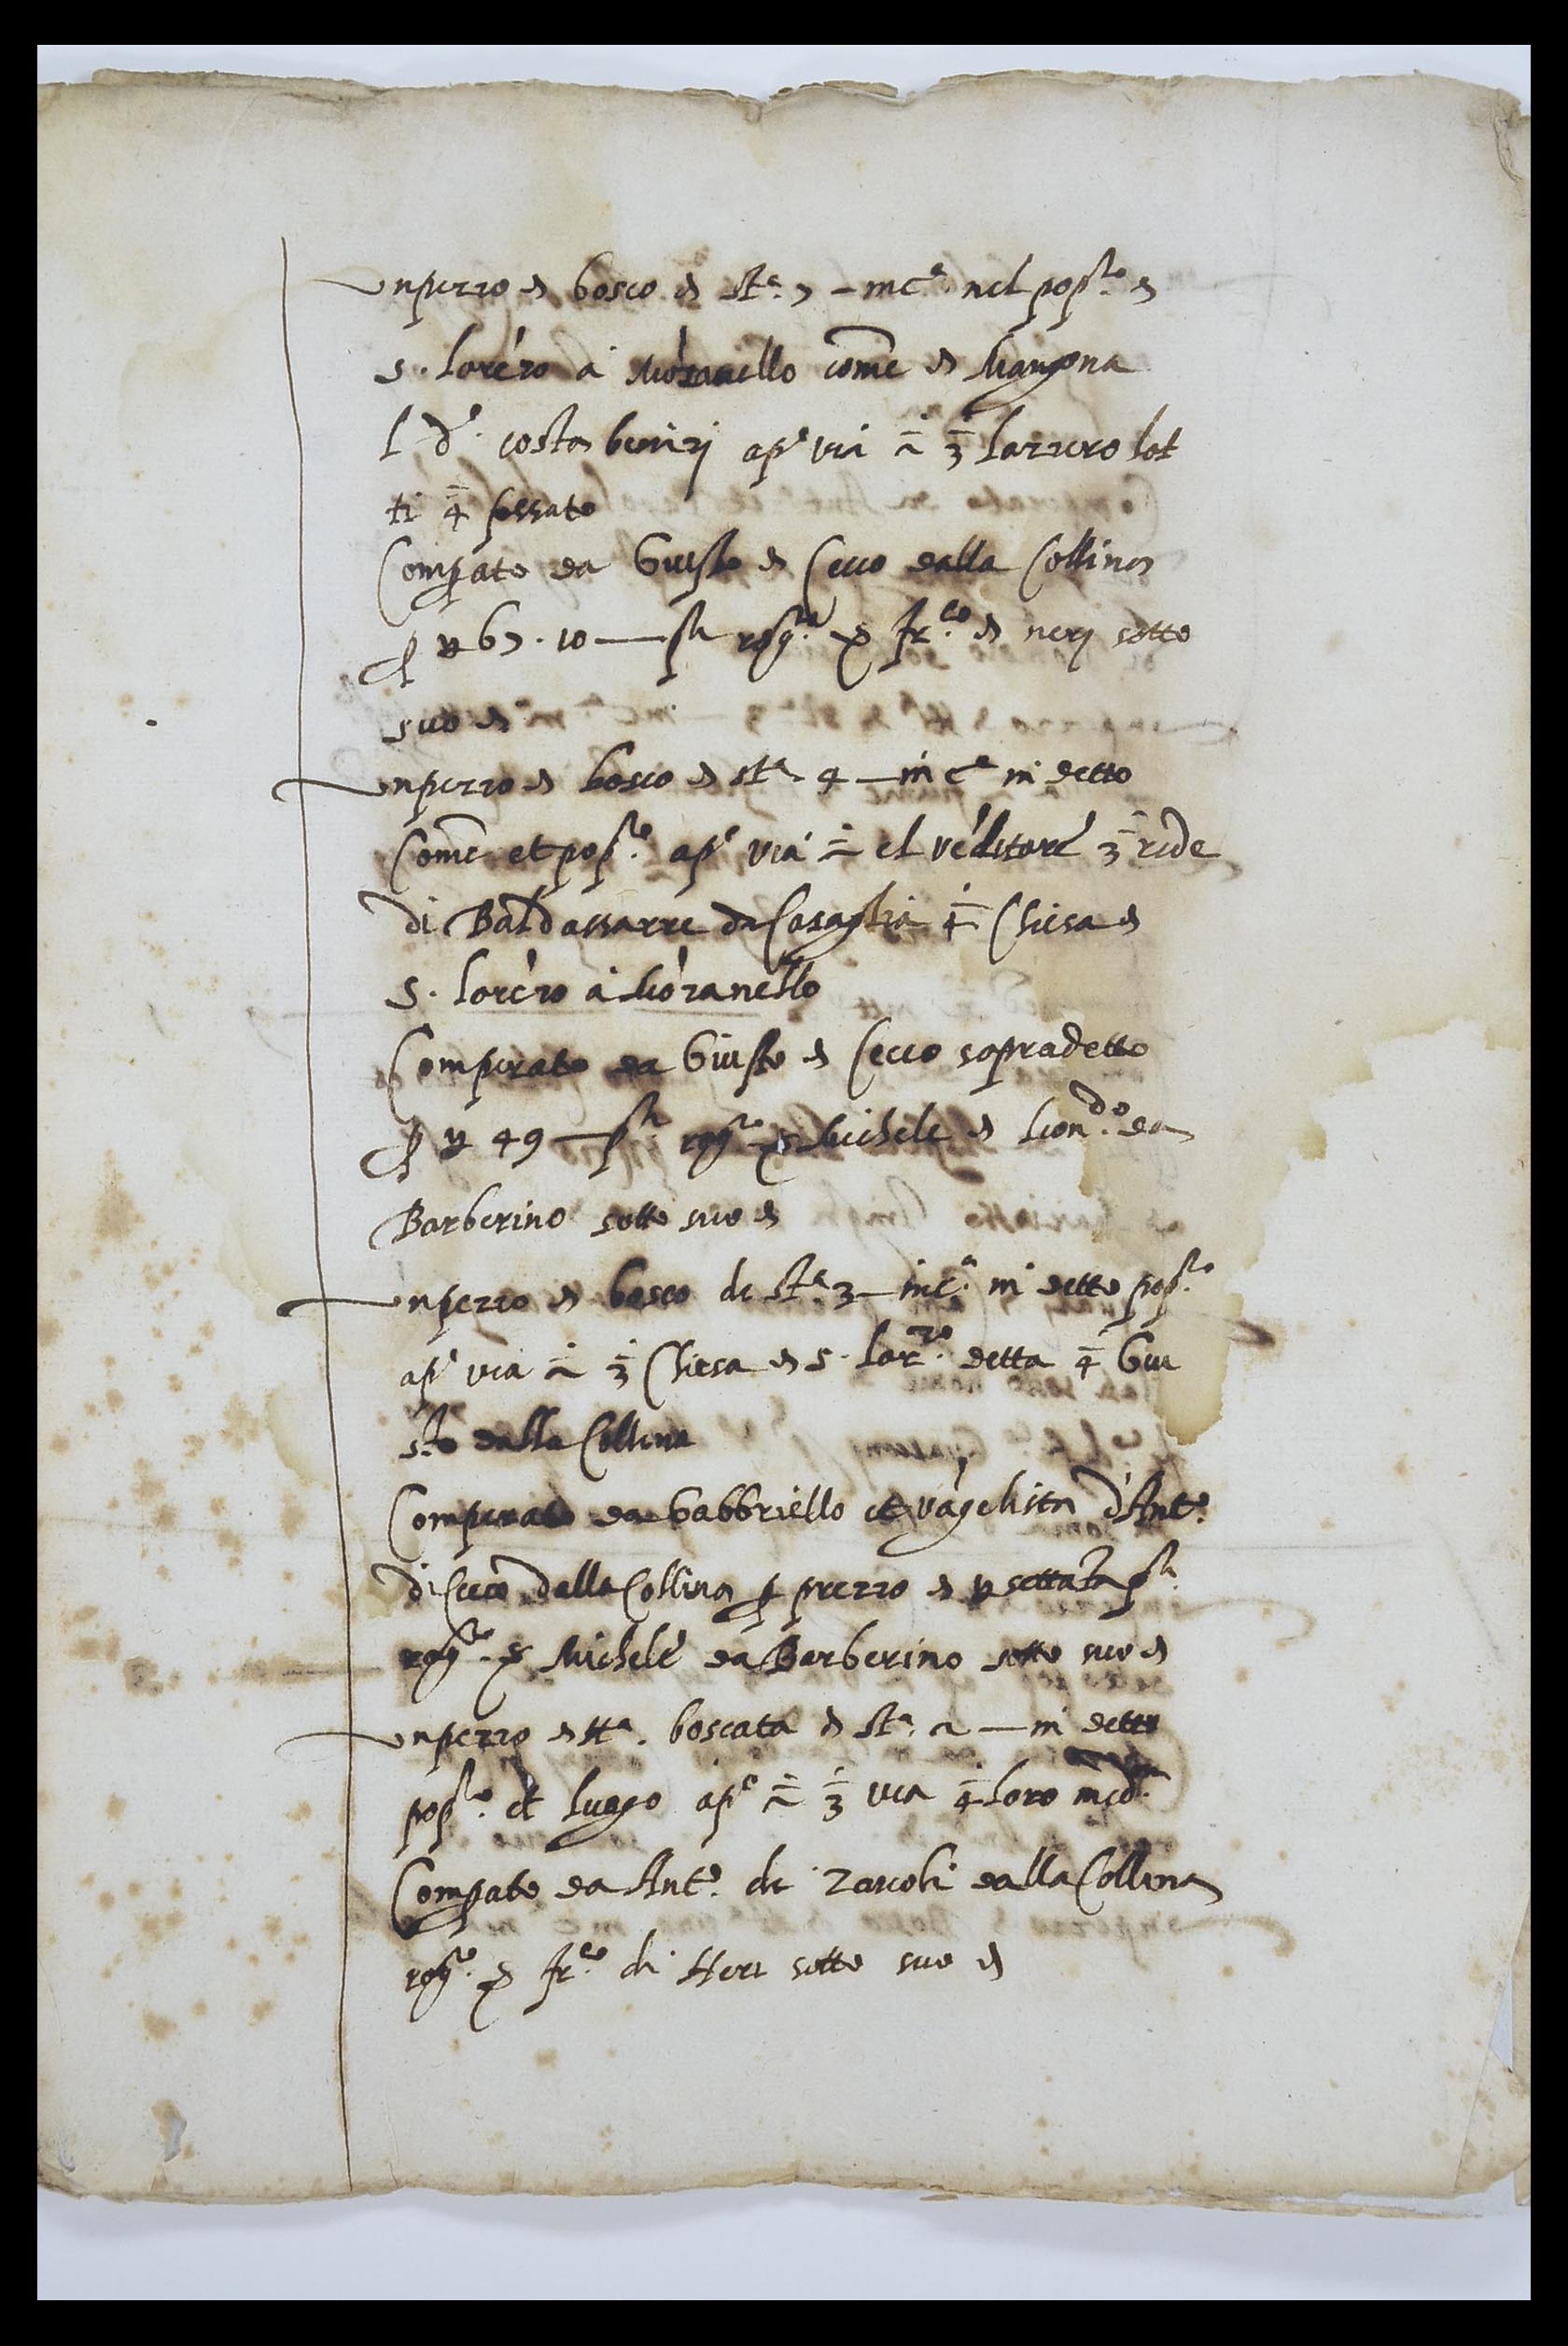 un pezzo di bosco di st.ª 7 – in c.ª nel pop.lo di
S. lorézo a Mózanello comé di Mangona
l. d.º costa benizi ap.º via 2 3 lazzero lot
ti 4 fossato
Comprato da Giusto di Cecco dalla Collina
p ∇ 67 . 10 — rog.to p fr.co di neri sotto
suo di
un pezzo di bosco di st.ª 4 — in c.ª in detto
Comé et pop.lo ap.º via 2 el véditore 3 rede
di Baldassarre da Casaglia 4 Chiesa di
S. lorézo a Mózanello
Comperato da Giusto di Cecco sopradetto
p ∇ 49 — rog.to p Michele di lion.do da
Barberino sotto suo di
un pezzo di bosco di st.ª 3 — in c.ª in detto pop.lo
ap.º via 2 3 Chiesa di S. lor.zo detta 4 Giu
sto dalla Collina
Comperato da Gabbriello et vágelista d'Ant.º
di Cecco dalla Collina p prezzo di ∇ settata
rog.to p Michele da Barberino sotto suo di
un pezzo di tt.ª boscata di st.ª 2 — in detto
pop.lo et luogo ap.º 2 3 via 4 loro med.
Comprato da Ant.º di Zacobi dalla Collina
rog.to p fr.co di Neri sotto suo di